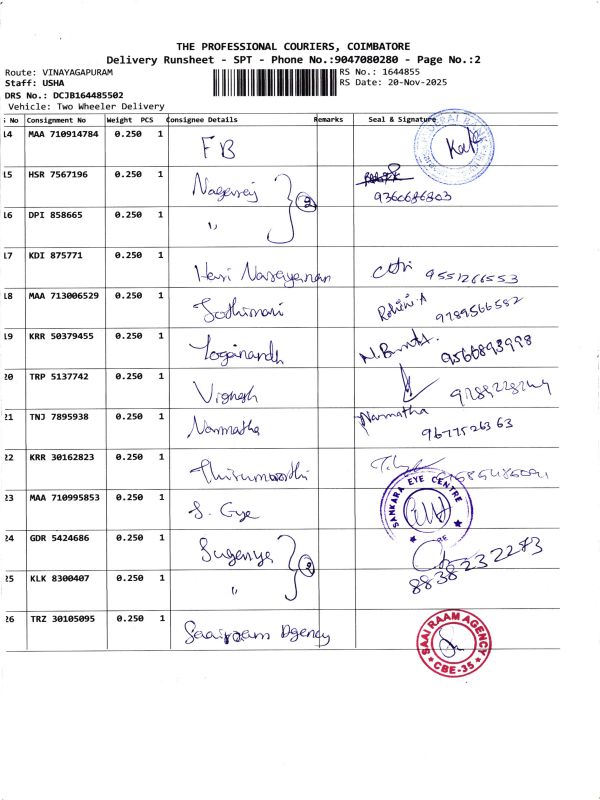 THE PROFESSIONAL COURIERS, COIMBATORE
Delivery Runsheet - SPT - Phone No.:9047080280 - Page No.:2
Route: VINAYAGAPURAM RS No.: 1644855
Staff: USHA RS Date: 20-Nov-2025
DRS No.: DCJB164485502
Vehicle: Two Wheeler Delivery
S No Consignment No Weight PCS Consignee Details Remarks Seal & Signature
14 MAA 710914784 0.250 1 FB
15 HSR 7567196 0.250 1 Nagaraj 2 9360686803
16 DPI 858665 0.250 1 "
17 KDI 875771 0.250 1 Hari Narayanan 9551266553
18 MAA 713006529 0.250 1 Jothimani Rohini.A 9789566582
19 KRR 50379455 0.250 1 Yoganandh 9566893998
20 TRP 5137742 0.250 1 Vignesh
21 TNJ 7895938 0.250 1 Narmatha Narmatha 9677526363
22 KRR 30162823 0.250 1 Thirumoorthi
23 MAA 710995853 0.250 1 S. Eye SANKARA EYE CENTRE
24 GDR 5424686 0.250 1 Suganya 2 8838232283
25 KLK 8300407 0.250 1 "
26 TRZ 30105095 0.250 1 Saairaam Agency SAAI RAAM AGENCY CBE-35